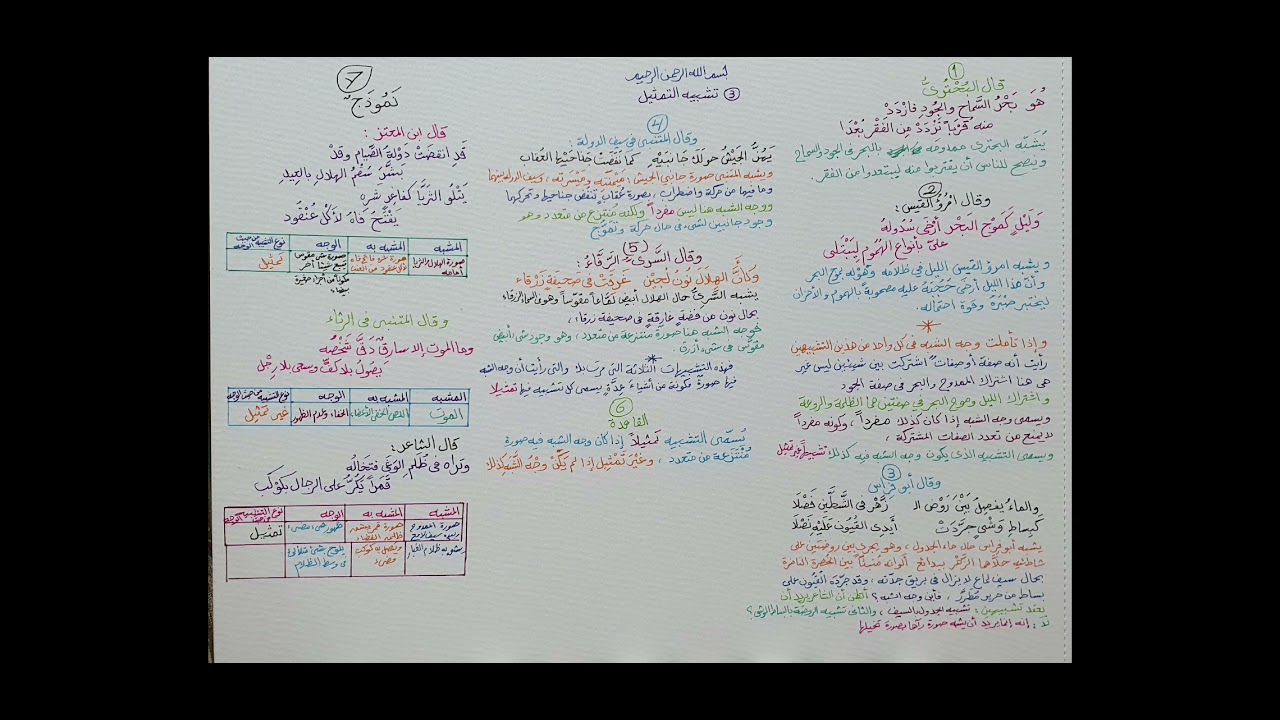 بسم الله الرحمن الرحيم
③ تشبيه التمثيل
①
قال البُحْتُرىُّ
هُوَ بَحْرُ السَّماحِ والجُودِ فازْدَدْ
منه قُرْباً تَزْدَدْ مِنَ الفَقْرِ بُعْدَا
يُشَبِّه البحترى ممدوحه بالبحر فى الجود والسماح
وينصح للناس أن يقتربوا منه ليبتعدوا من الفقر.
②
وقال امرؤ القَيْس:
وَلَيْلٍ كَمَوْجِ البَحْرِ أرْخَى سُدُولَهُ
علىَّ بأنواعِ الهُمُومِ لِيَبْتَلى
ويشبه امرؤ القيس الليل فى ظلامه وهوله بموج البحر
وأنَّ هذا الليل أرخَى حُجُبَهُ عليه مصحوبةً بالهموم والأحزان
ليختبر صَبْرَهُ وقوة احتماله.
وإذا تأملت وجه الشبه فى كل واحد من هذين التشبيهين
رأيت أنه صفة أو صفات اشتركت بين شيئين ليس غير
هى هنا اشتراك الممدوح والبحر فى صفة الجود
واشتراك الليل وموج البحر فى صفتين هما الظلمة والروعة
ويسمى وجه الشبه إذا كان كذلك مفرداً، وكونه مفرداً
لا يمنع من تعدد الصفات المشتركة،
ويسمى التشبيه الذى يكون وجه الشبه فيه كذلك تشبيهاً غير تمثيل
③
وقال أبو فِراس
والماءُ يَفصِلُ بَيْنَ رَوْضِ الـ زَّهْرِ فى الشَّطَّيْنِ فَصْلَا
كَبِساطِ وَشْىٍ جرَّدَتْ أيدِى القُيُونِ عَلَيْهِ نَصْلَا
يشبه أبو فراس حال ماء الجدول، وهو يجرى بين روضتين على
شاطئيه حلاهما الزَّهْر ببدائع ألوانه مُنبثًّا بين الخُضرة الناضرة
بحال سيف لماع لا يزال فى بريق جدته، وقد جرَّده القُيُون على
بساط من حرير مُطَرَّز، فأين وجه الشبه؟ أتظن أن الشاعر يريد أن
يعقد تشبيهين: تشبيه الجدول بالسيف، والثانى تشبيه الروضة بالبساط الموشى؟
لا: إنه إنما يريد أن يشبه صورة رآها بصورة تخيلها
④
وقال المتنبى فى سيف الدولة:
يَهُزُّ الجَيْشُ حولَكَ جَانبَيْهِ كما نَفَضَتْ جَناحَيْها العُقابُ
ويشبه المتنبى صورة جانبى الجيش: مَيْمَنَتِه ومَيْسَرَتِه، وسيف الدولة بينهما
وما فيهما من حركة واضطراب، بصورة عُقابٍ تنفض جناحيها وتحركهما
ووجه الشبه هنا ليس مفرداً ولكنه مُنتزع من متعدد وهو
وجود جانبين لشىء فى حال حركة وتموّج
(5)
وقال السَّرِىُّ الرَّفَّاءُ:
وكأنَّ الهِلالَ نُونُ لُجَيْنٍ غَرِقَتْ فى صَحيفَةٍ زَرْقاءِ
يشبه السَّرِىُّ حال الهلال أبيض لمَّاعاً مقوّساً وهو فى السماء الزرقاء
بحال نون من فضة غارقةٍ فى صحيفة زرقاء،
فوجه الشبه هنا صورة منتزعة من متعدد، وهو وجود شىء أبيض
مقوّس فى شىء أزرق.
فهذه التشبيهات الثلاثة التى مرت بك والتى رأيت أن وجه الشبه
فيها صورةٌ مكونة من أشياء عدَّةٍ يسمى كل تشبيه فيها تمثيلا
⑥
القاعدة
يُسمَّى التشبيه تَمثيلاً إذا كان وجه الشبه فيه صورة
مُنْتَزعة من متعدد، وغَيْرَ تَمْثيل إذا لم يَكُنْ وجْهُ الشَّبَهِ كذلك
7
نَمُوذَجٌ
قال ابن المعتز:
قَدِ انقضتْ دَوْلةُ الصِّيامِ وقَدْ
بشَّرَ سُقْمُ الهِلالِ بالعِيدِ
يَتْلُو الثُّريَّا كفاغِرٍ شَرِهٍ
يَفْتَحُ فاهُ لأكْلِ عُنْقُودِ
المشبه المشبه به الوجه نوع التشبيه من حيث الوجه
صورة الهلال والثريا أمامه صورة شره فاتح فاه لأكل عنقود من العنب صورة شىء مقوس يتبع شيئاً آخر مكوناً من أجزاء صغيرة بيضاء تمثيل
وقال المتنبى فى الرثاء
وما الموتُ إلا سارقٌ دَقَّ شَخْصُهُ
يَصُولُ بلا كَفٍّ ويسعى بلا رِجْلِ
المشبه المشبه به الوجه نوع التشبيه من حيث الوجه
الموت اللص الخفى الأعضاء الخفاء وعدم الظهور غير تمثيل
قال الشاعر:
وتَراهُ فى ظُلَمِ الوَغَى فتَخالُهُ
قَمَراً يَكُرُّ على الرجالِ بكَوْكَبِ
المشبه المشبه به الوجه نوع التشبيه من حيث الوجه
صورة الممدوح وبيده سيف لامع يشق به ظلام الغبار صورة قمر يشق ظلمة الفضاء ويتصل به كوكب مضىء ظهور شىء مضىء يلوح بشىء متلألئ فى وسط الظلام تمثيل